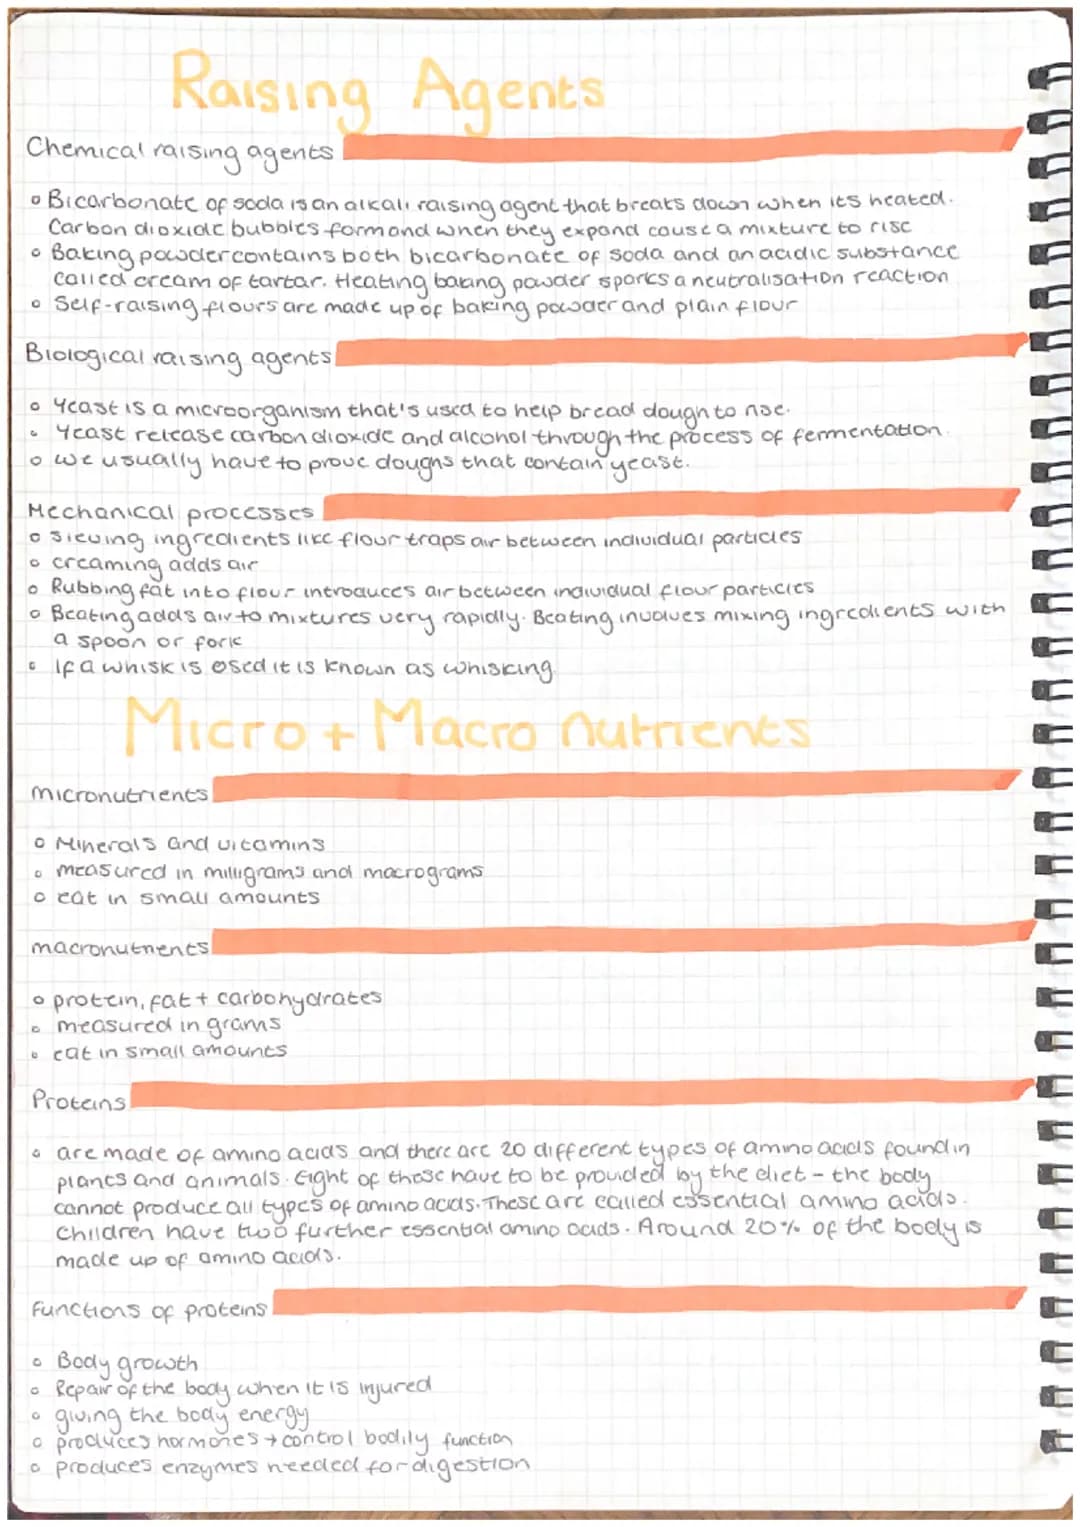 Raising Agents
Chemical raising agents
Bicarbonate of soda is an alkali raising agent that breaks down when its heated.
Carbon dioxide bubbles form and when they expand cause a mixture to rise
Baking powder contains both bicarbonate of soda and an acidic substance
called cream of tartar. Heating baking powder sparks a neutralisation reaction
Self-raising flours are made up of baking powder and plain flour
Biological raising agents
Yeast is a microorganism that's used to help bread dough to rise.
Yeast release carbon dioxide and alcohol through the process of fermentation.
We usually have to prove doughs that contain yeast.
Mechanical processes
Sieving ingredients like flour traps air between individual particles
creaming adds air
Rubbing fat into flour introduces air between individual flour particles
Beating adds air to mixtures very rapidly. Beating involves mixing ingredients with
a spoon or fork
If a whisk is used it is known as whisking
Micro + Macro nutrients
micronutrients
Minerals and vitamins
measured in milligrams and macrograms
eat in small amounts
macronutrients
protein, fat + carbohydrates
measured in grams
eat in small amounts
Proteins
are made of amino acids and there are 20 different types of amino acids found in
plants and animals. Eight of these have to be provided by the diet - the body
cannot produce all types of amino acids. These are called essential amino acids.
Children have two further essential amino acids. Around 20% of the body is
made up of amino acids.
Functions of proteins
Body growth
Repair of the body when it is injured
giving the body energy
produces hormones → control bodily function
produces enzymes needed for digestion